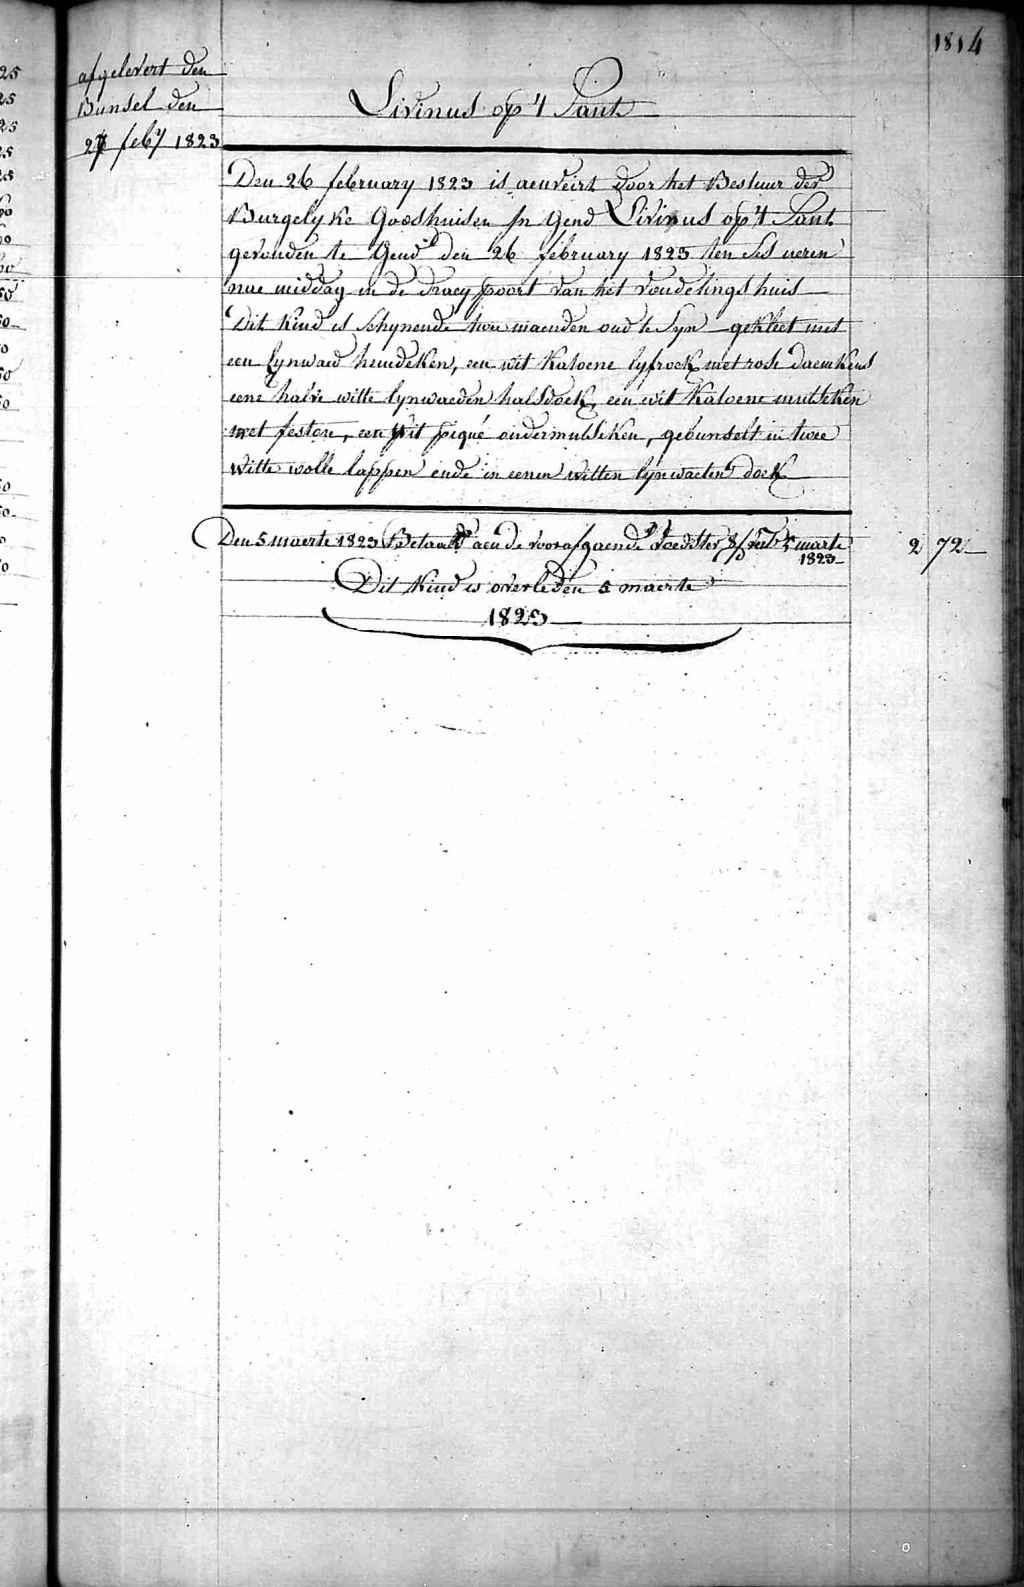 1814
afgelevert den
Bunsel den
27 feb'y 1823
Livinus op 't Sant
Den 26 february 1823 is aenveirt door het Bestuur der
Burgelyke Godshuisen In Gend Livinus op 't Sant
gevonden te Gend den 26 february 1823 ten ses ueren
nae middag in de draey poort van het vondelingshuis
Dit kind is schynende twee maenden oud te syn gekleet met
een lynwaed hemdeken, een wit katoene lyfrock met rose
eene halve witte lynwaeden halsdoek, een wit katoene mutseken
met feston, een wit piqué ondermutseken, gebunselt in twee
witte wolle lappen ende in eenen witten lynwaeten doek
Den 5 maerte 1823 Betaeld aen de voorafgaende voedster 5 maerte 2 72
1823
Dit Kind is overleden 5 maerte
1823